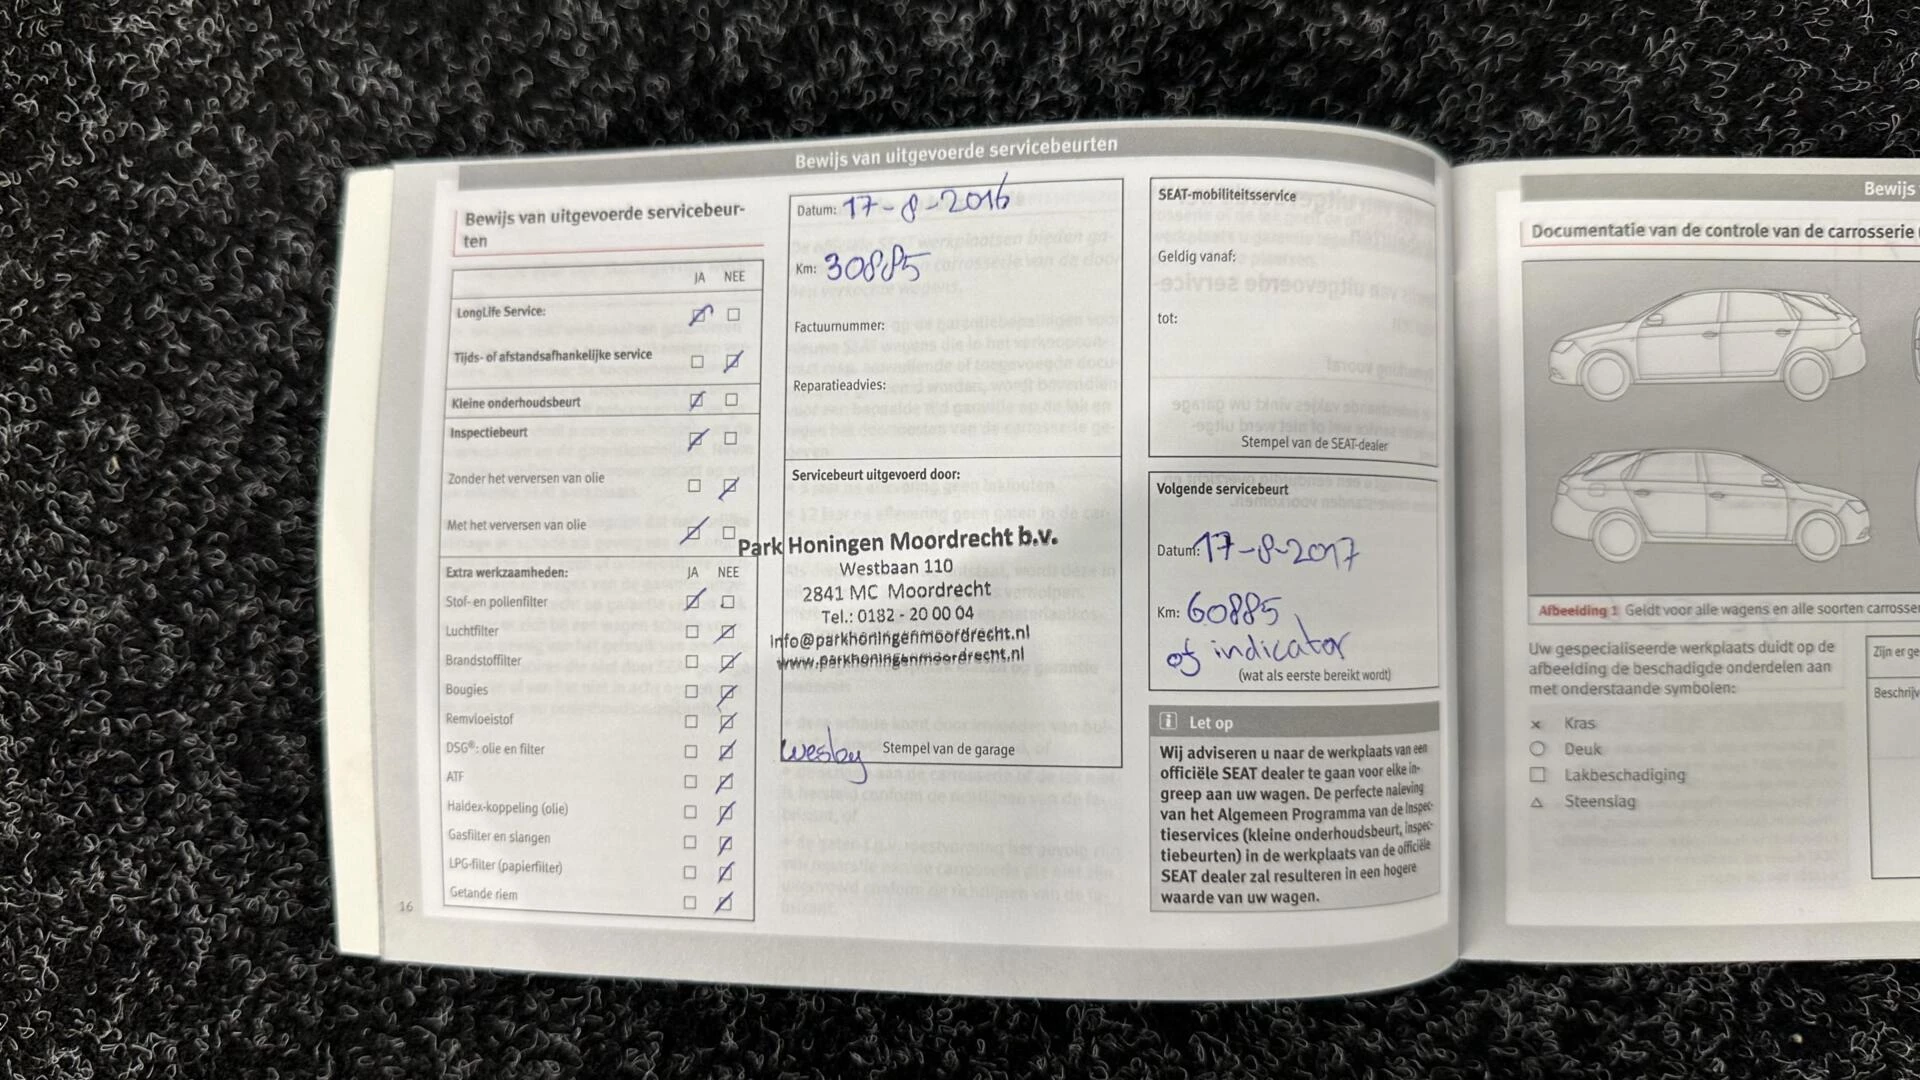 Bewijs van uitgevoerde servicebeurten
Bewijs van uitgevoerde servicebeur-
ten
JA NEE
LongLife Service:
Tijds- of afstandsafhankelijke service
Kleine onderhoudsbeurt
Inspectiebeurt
Zonder het verversen van olie
Met het verversen van olie
Extra werkzaamheden: JA NEE
Stof- en pollenfilter
Luchtfilter
Brandstoffilter
Bougies
Remvloeistof
DSG®: olie en filter
ATF
Haldex-koppeling (olie)
Gasfilter en slangen
LPG-filter (papierfilter)
Getande riem
16
Datum: 17-8-2016
Km: 30885
Factuurnummer:
Reparatieadvies:
Servicebeurt uitgevoerd door:
Park Honingen Moordrecht b.v.
Westbaan 110
2841 MC Moordrecht
Tel.: 0182 - 20 00 04
info@parkhoningenmoordrecht.nl
www.parkhoningenmoordrecht.nl
Wesby Stempel van de garage
SEAT-mobiliteitsservice
Geldig vanaf:
tot:
Stempel van de SEAT-dealer
Volgende servicebeurt
Datum: 17-8-2017
Km: 60885
of indicator
(wat als eerste bereikt wordt)
i Let op
Wij adviseren u naar de werkplaats van een
officiële SEAT dealer te gaan voor elke in-
greep aan uw wagen. De perfecte naleving
van het Algemeen Programma van de Inspec-
tieservices (kleine onderhoudsbeurt, inspec-
tiebeurten) in de werkplaats van de officiële
SEAT dealer zal resulteren in een hogere
waarde van uw wagen.
Bewijs
Documentatie van de controle van de carrosserie
Afbeelding 1 Geldt voor alle wagens en alle soorten carrosser
Uw gespecialiseerde werkplaats duidt op de
afbeelding de beschadigde onderdelen aan
met onderstaande symbolen:
x Kras
○ Deuk
□ Lakbeschadiging
△ Steenslag
Zijn er ge
Beschrijv